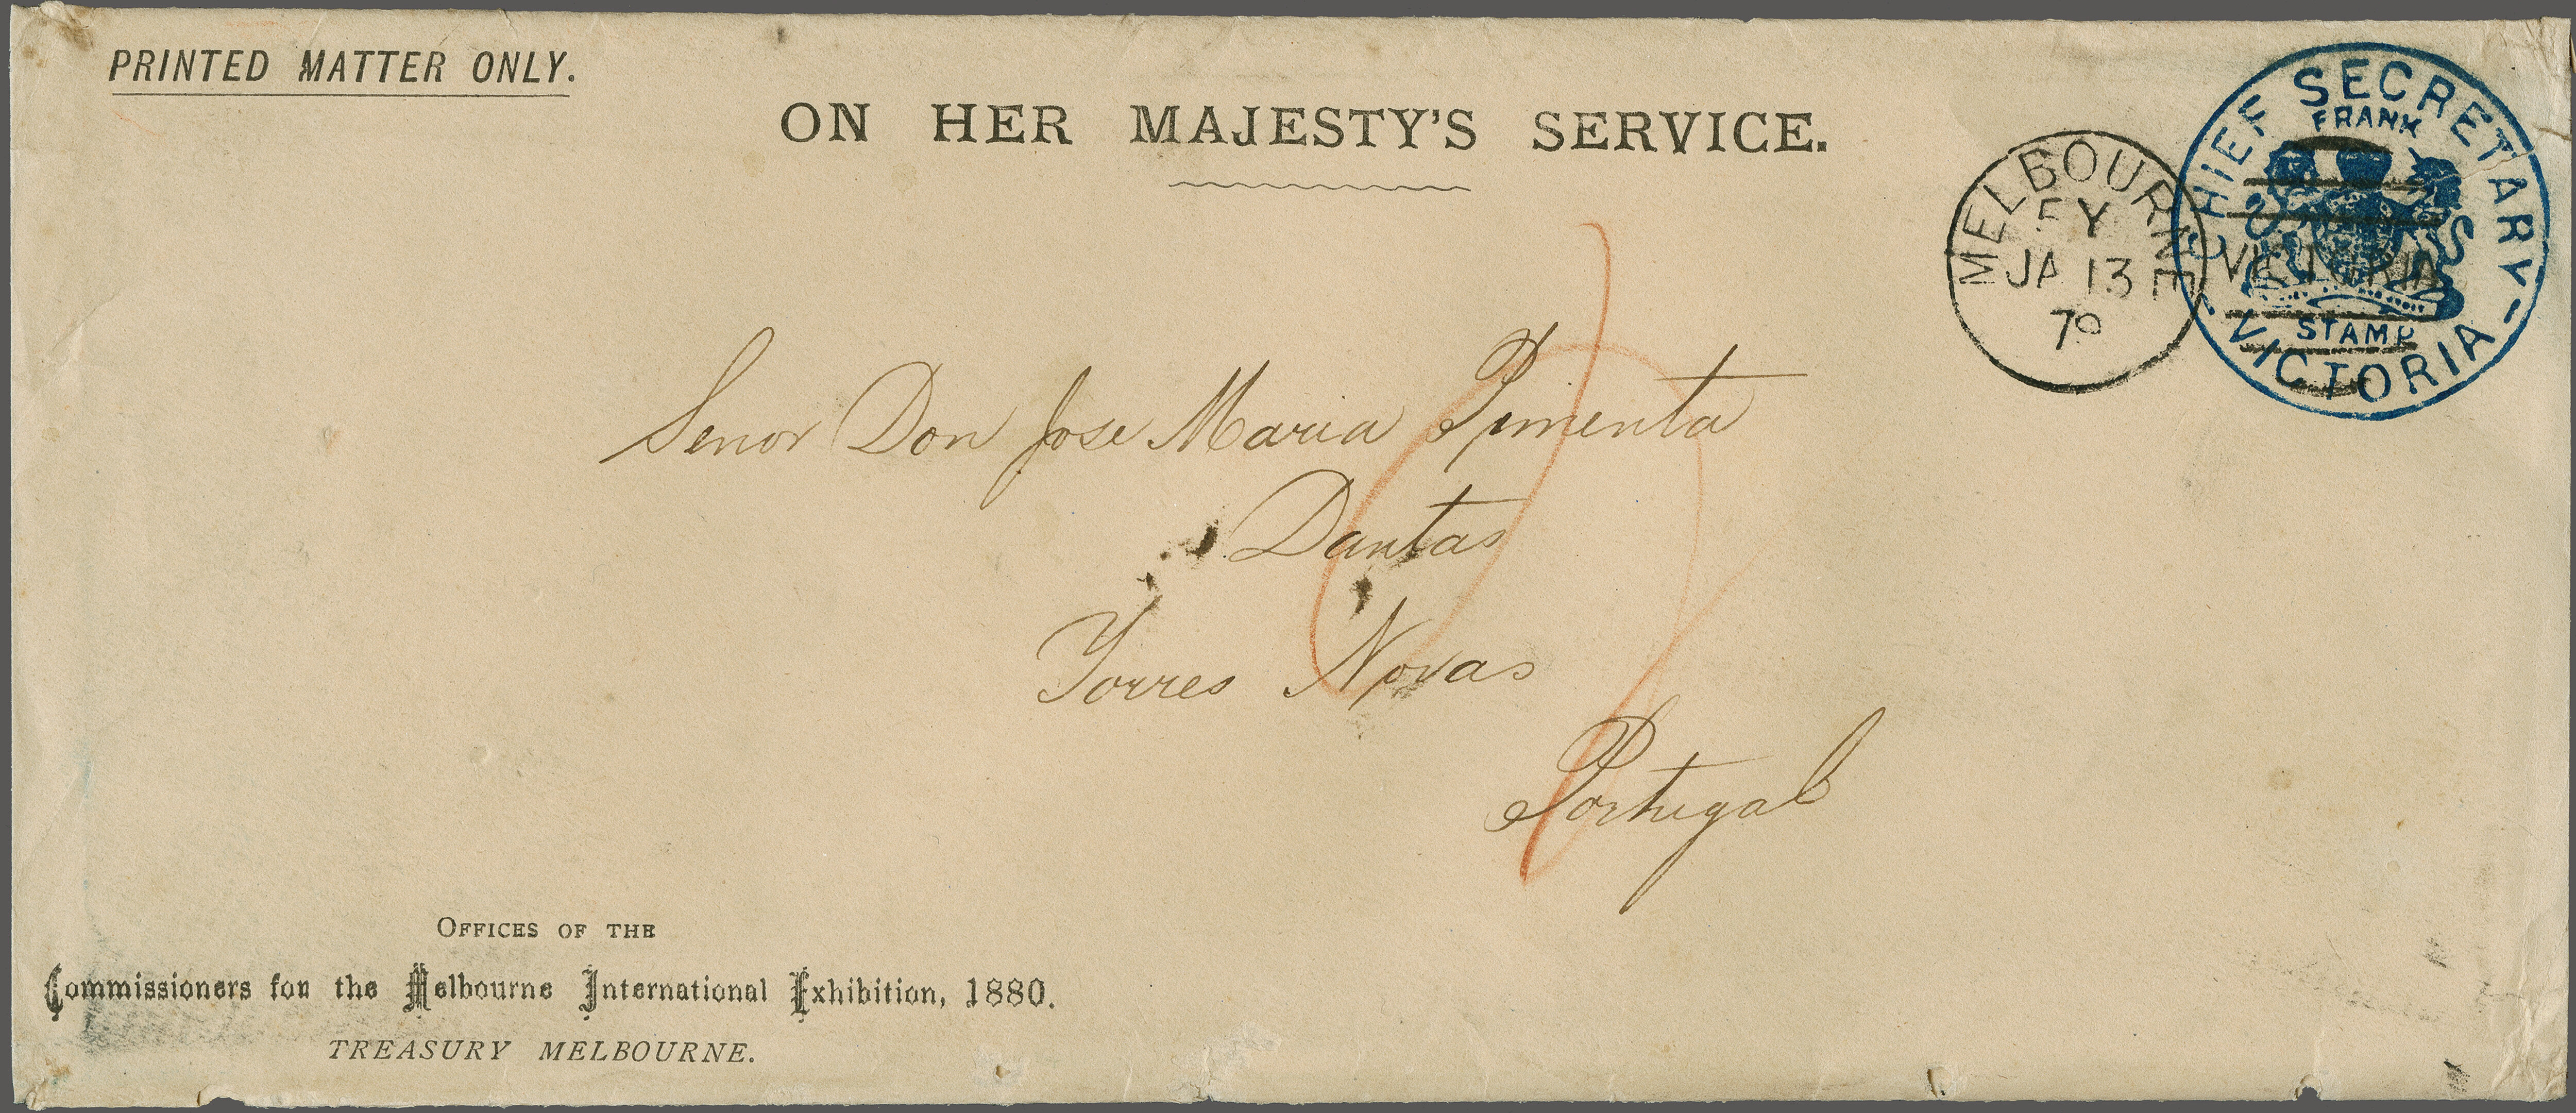 PRINTED MATTER ONLY.
ON HER MAJESTY'S SERVICE.
MELBOURNE
FY
JA 13
79
VICTORIA
CHIEF SECRETARY
FRANK
STAMP
- VICTORIA -
Senor Don Jose Maria Pimenta
Dantas
Torres Novas
Portugal
OFFICES OF THE
Commissioners for the Melbourne International Exhibition, 1880.
TREASURY MELBOURNE.